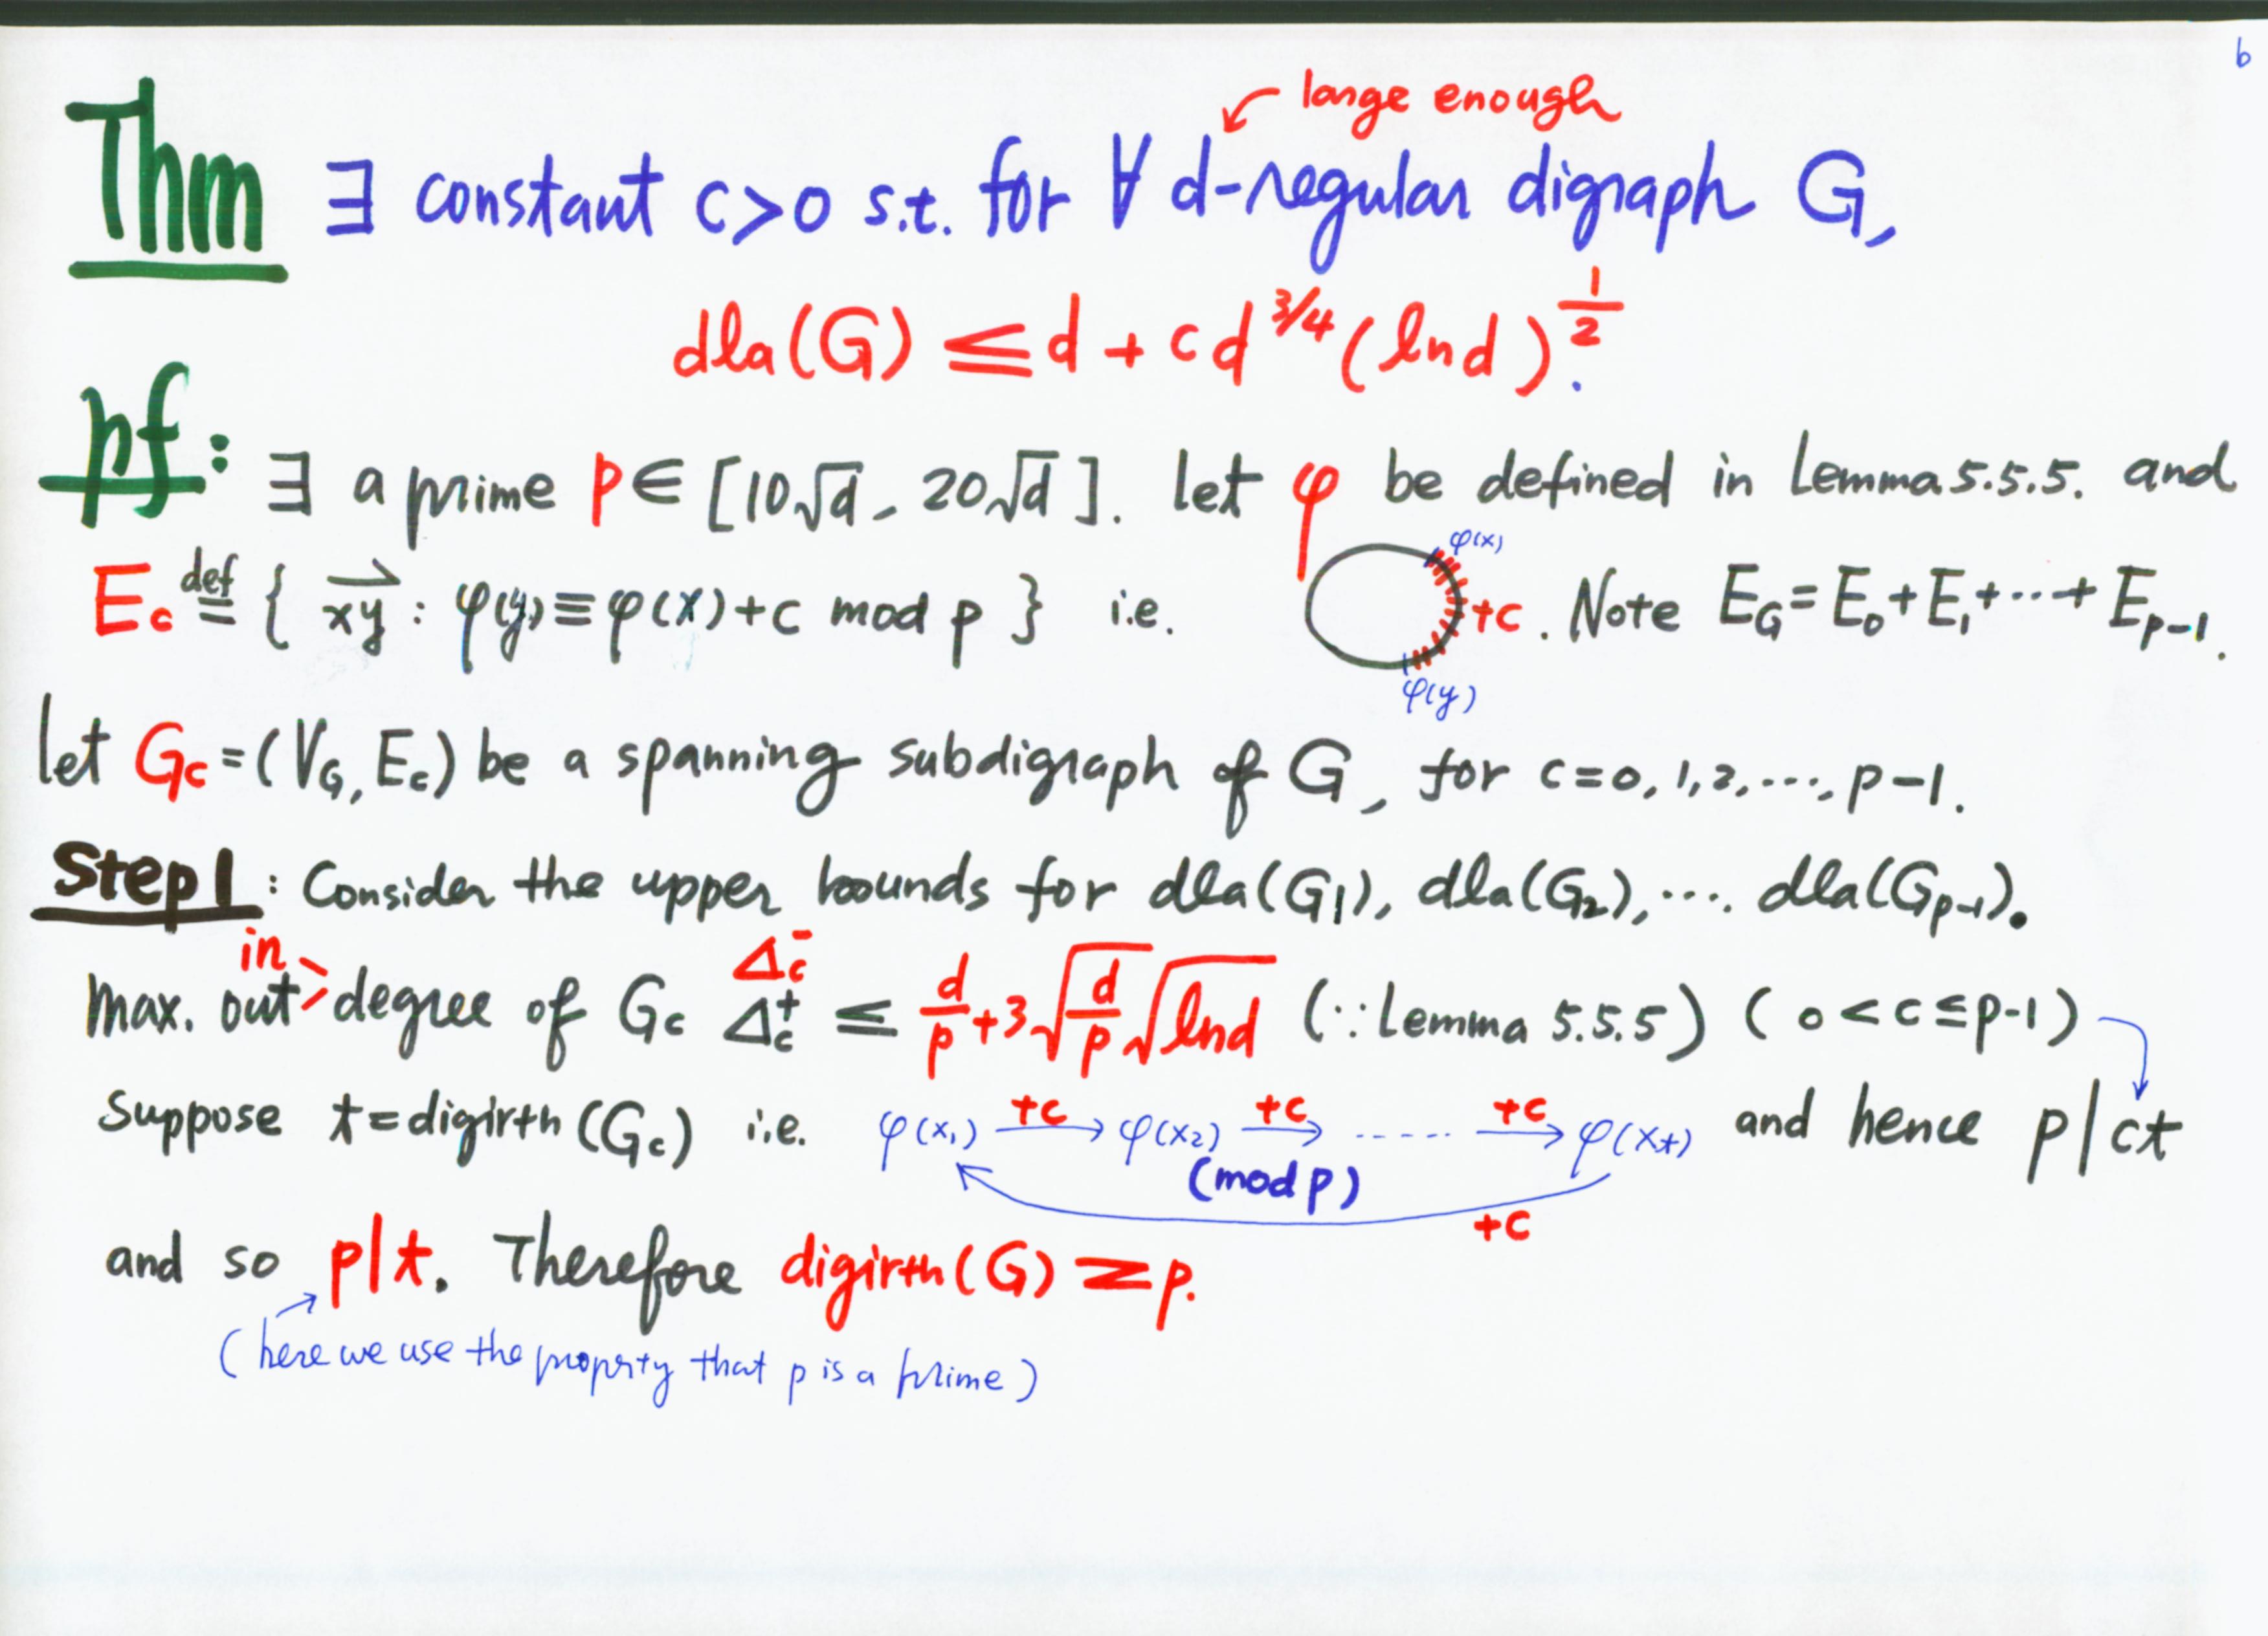 6
large enough
Thm ∃ constant c>0 s.t. for ∀ d-regular digraph G,
dla(G) ≤ d + c d^{3/4} (ln d)^{1/2}.
pf: ∃ a prime p ∈ [10√d, 20√d]. let φ be defined in Lemma 5.5.5. and
φ(x)
E_c ≝ { \overrightarrow{xy} : φ(y) ≡ φ(x)+c mod p } i.e. +c. Note E_G = E_0 + E_1 + ⋯ + E_{p-1}.
φ(y)
let G_c = (V_G, E_c) be a spanning subdigraph of G, for c=0, 1, 2, ⋯, p-1.
Step 1: Consider the upper bounds for dla(G_1), dla(G_2), ⋯. dla(G_{p-1}).
in Δ_c^-
max. out > degree of G_c Δ_c^+ ≤ d/p + 3√(d/p) √(ln d) (∵ Lemma 5.5.5) (0 < c ≤ p-1)
Suppose t = digirth(G_c) i.e. φ(x_1) →^{+c} φ(x_2) →^{+c} ------ →^{+c} φ(x_t) and hence p | ct
(mod p)
+c
and so p|t. Therefore digirth(G) ≥ p.
(here we use the property that p is a prime)